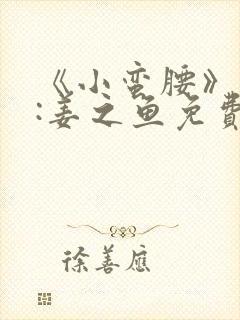 《小蛮腰》
:姜之鱼免費
徐善應